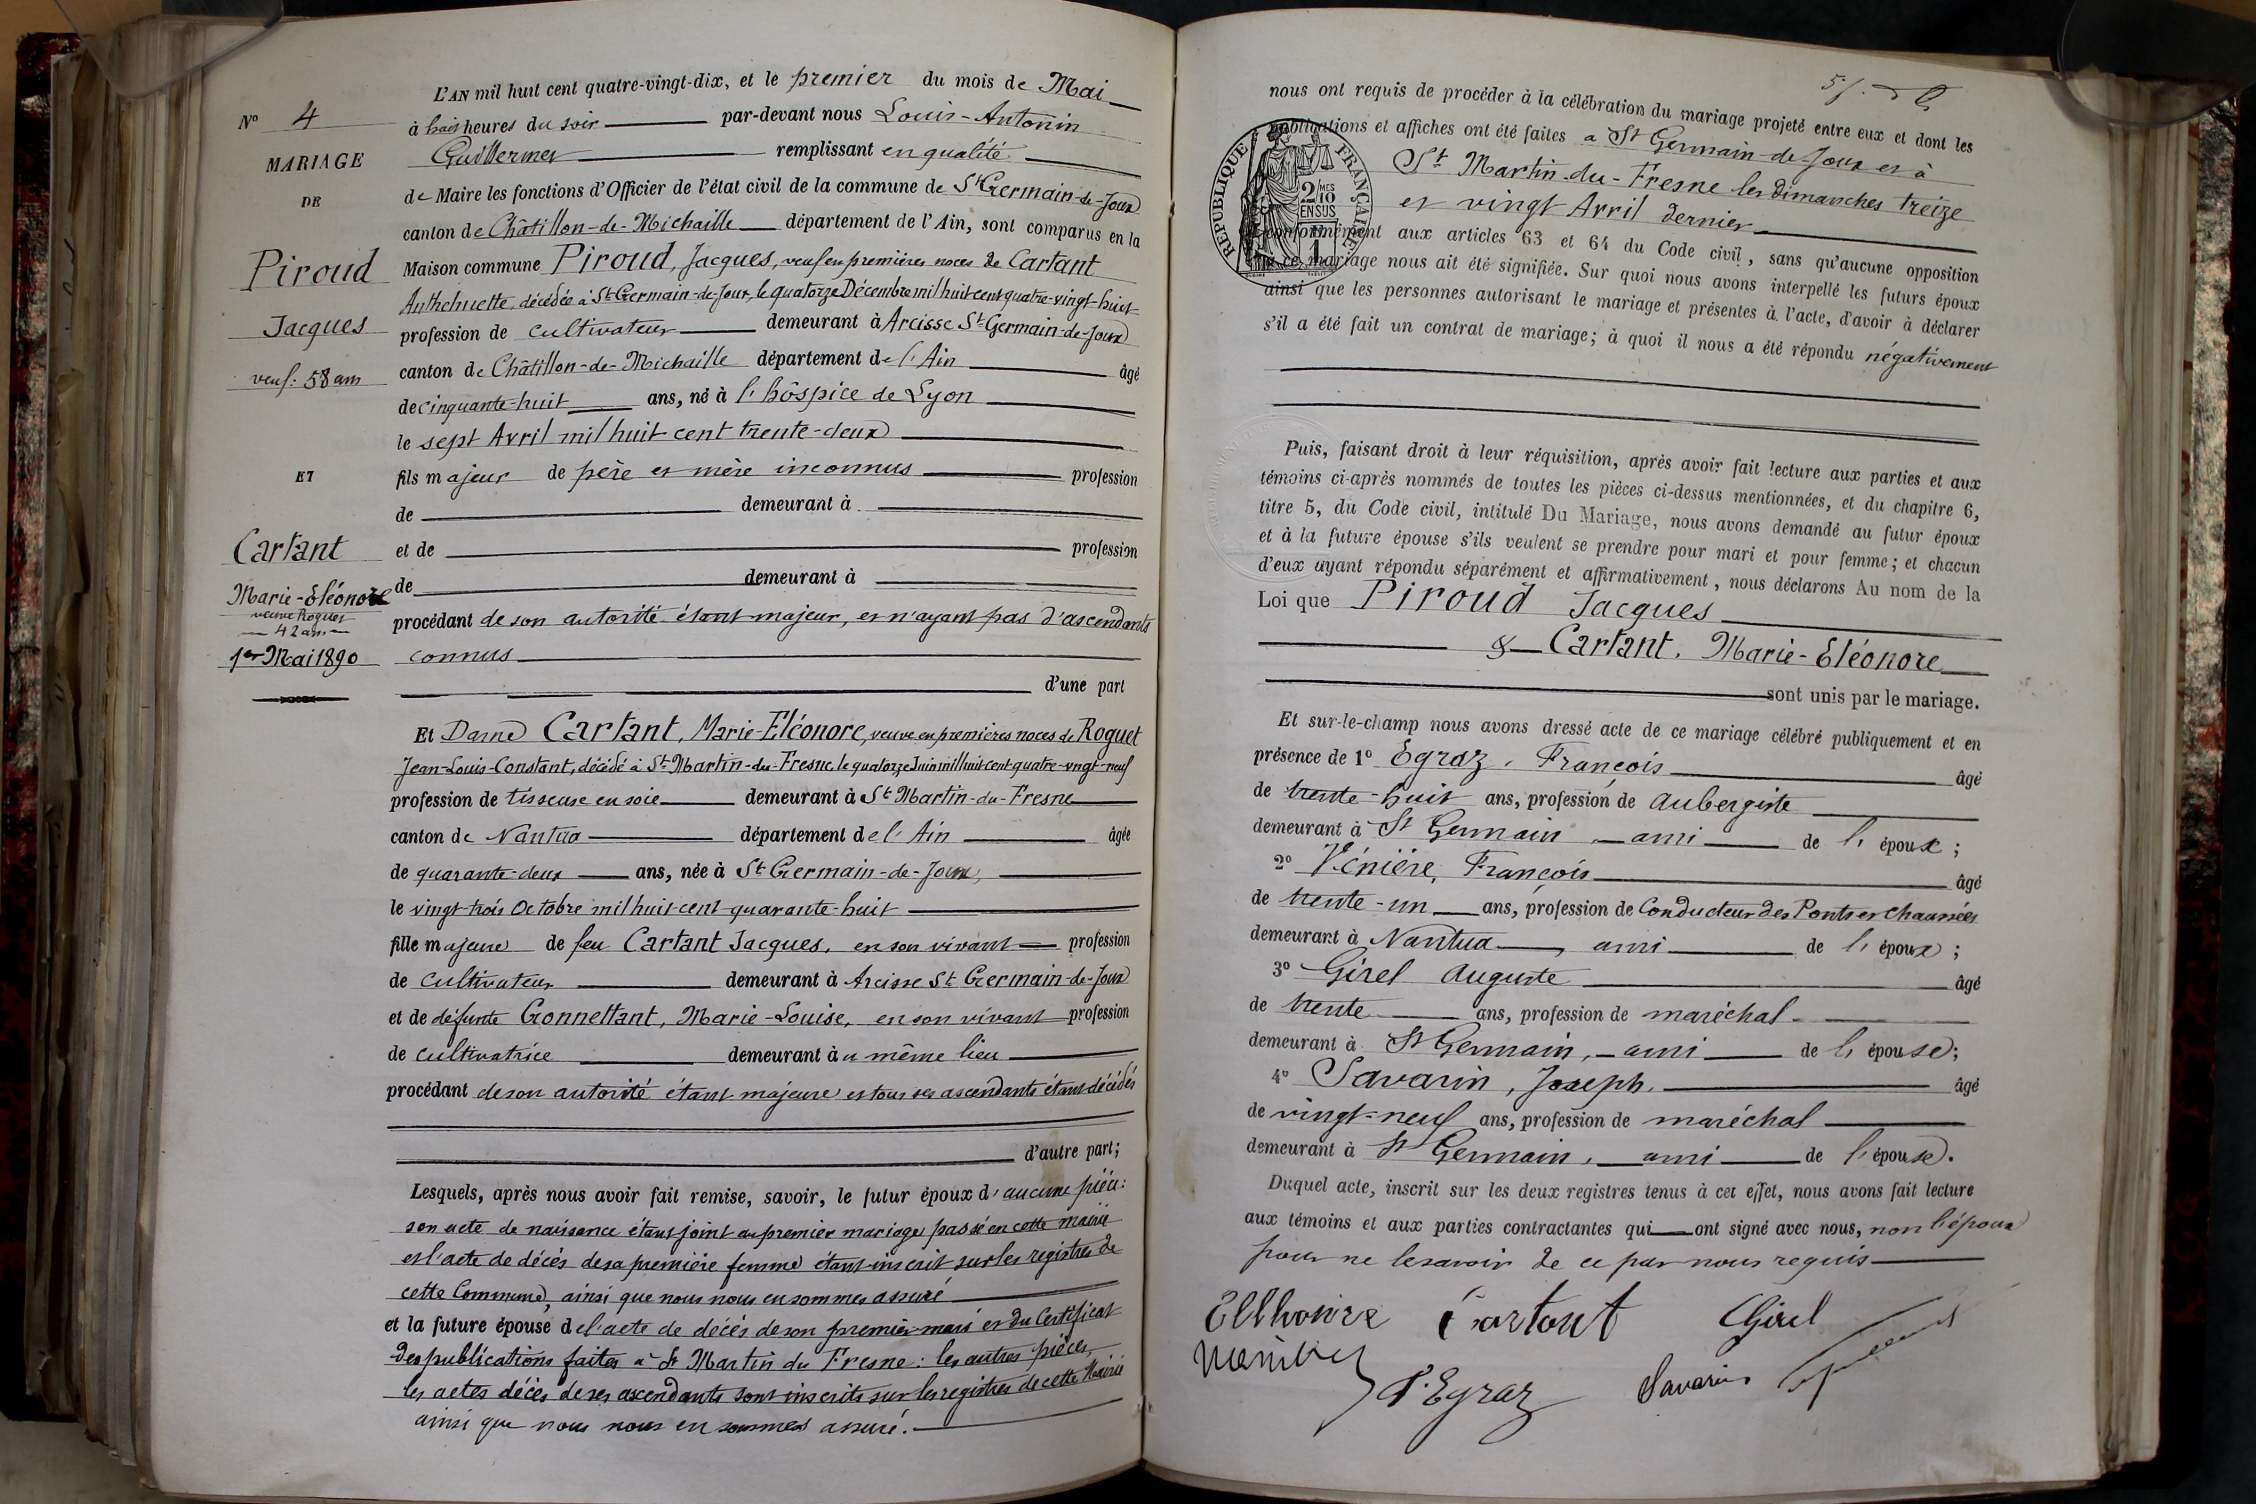 L'AN mil huit cent quatre-vingt-dix, et le premier du mois de Mai
à huit heures du soir par-devant nous Louis-Antonin
Guillermet remplissant en qualité
de Maire les fonctions d'Officier de l'état civil de la commune de St Germain-de-Joux
canton de Châtillon-de-Michaille département de l'Ain, sont comparus en la
Maison commune Piroud, Jacques, veuf en premières noces de Cartant
Anthelmette, décédée à St Germain-de-Joux, le quatorze Décembre mil huit cent quatre-vingt-huit
profession de cultivateur demeurant à Arcisse St Germain-de-Joux
canton de Châtillon-de-Michaille département de l'Ain âgé
de cinquante-huit ans, né à l'hôspice de Lyon
le sept Avril mil huit cent trente-deux
fils majeur de père et mère inconnus profession
de demeurant à
et de profession
de demeurant à
procédant de son autorité étant majeur, et n'ayant pas d'ascendants
connus
d'une part
Et Dame Cartant, Marie-Eléonore, veuve en premières noces de Roguet
Jean-Louis-Constant, décédé à St Martin-du-Fresne, le quatorze Juin mil huit-cent-quatre-vingt-neuf
profession de tisseuse en soie demeurant à St Martin-du-Fresne
canton de Nantua département de l'Ain âgée
de quarante-deux ans, née à St Germain-de-Joux,
le vingt-trois Octobre mil huit-cent-quarante-huit
fille majeure de feu Cartant Jacques, en son vivant profession
de cultivateur demeurant à Arcisse St Germain-de-Joux
et de défunte Gonnettant, Marie-Louise, en son vivant profession
de cultivatrice demeurant au même lieu
procédant de son autorité étant majeure et tous ses ascendants étant décédés
d'autre part;
Lesquels, après nous avoir fait remise, savoir, le futur époux d'aucune pièce:
son acte de naissance étant joint au premier mariage passé en cette mairie
et l'acte de décès de sa première femme étant inscrit sur les registres de
cette Commune, ainsi que nous nous en sommes assuré
et la future épouse de l'acte de décès de son premier mari et du Certificat
des publications faites à St Martin du Fresne: les autres pièces,
les actes décès de ses ascendants sont inscrits sur les registres de cette Mairie
ainsi que nous nous en sommes assuré.
No 4
MARIAGE
DE
Piroud
Jacques
veuf. 58 ans
ET
Cartant
Marie-Eléonore
veuve Roguet
42 ans
1er Mai 1890
nous ont requis de procéder à la célébration du mariage projeté entre eux et dont les
publications et affiches ont été faites à St Germain-de-Joux et à
St Martin-du-Fresne les dimanches treize
et vingt Avril dernier
conformément aux articles 63 et 64 du Code civil, sans qu'aucune opposition
à ce mariage nous ait été signifiée. Sur quoi nous avons interpellé les futurs époux
ainsi que les personnes autorisant le mariage et présentes à l'acte, d'avoir à déclarer
s'il a été fait un contrat de mariage; à quoi il nous a été répondu négativement
RÉPUBLIQUE FRANÇAISE
2/MES
10
EN SUS
1
Puis, faisant droit à leur réquisition, après avoir fait lecture aux parties et aux
témoins ci-après nommés de toutes les pièces ci-dessus mentionnées, et du chapitre 6,
titre 5, du Code civil, intitulé Du Mariage, nous avons demandé au futur époux
et à la future épouse s'ils veulent se prendre pour mari et pour femme; et chacun
d'eux ayant répondu séparément et affirmativement, nous déclarons Au nom de la
Loi que Piroud Jacques
& Cartant, Marie-Eléonore
sont unis par le mariage.
Et sur-le-champ nous avons dressé acte de ce mariage célébré publiquement et en
présence de 1o Egraz, François âgé
de trente-huit ans, profession de aubergiste
demeurant à St Germain, ami de l'époux;
2o Vénière, François âgé
de trente-un ans, profession de Conducteur des Ponts et chaussées
demeurant à Nantua, ami de l'époux;
3o Girel Auguste âgé
de trente ans, profession de maréchal
demeurant à St Germain, ami de l'épouse;
4o Savarin, Joseph, âgé
de vingt-neuf ans, profession de maréchal
demeurant à St Germain, ami de l'épouse.
Duquel acte, inscrit sur les deux registres tenus à cet effet, nous avons fait lecture
aux témoins et aux parties contractantes qui ont signé avec nous, non l'époux
pour ne le savoir de ce par nous requis
Cartant Girel
F. Egraz Savarin